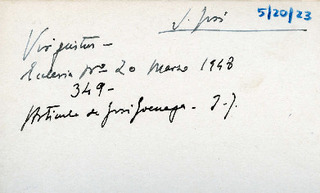 S. José
5/20/23
Virginitas -
Ecclesia nro 20 Marzo 1948
349 -
Artículo de José Goenaga - S. J.